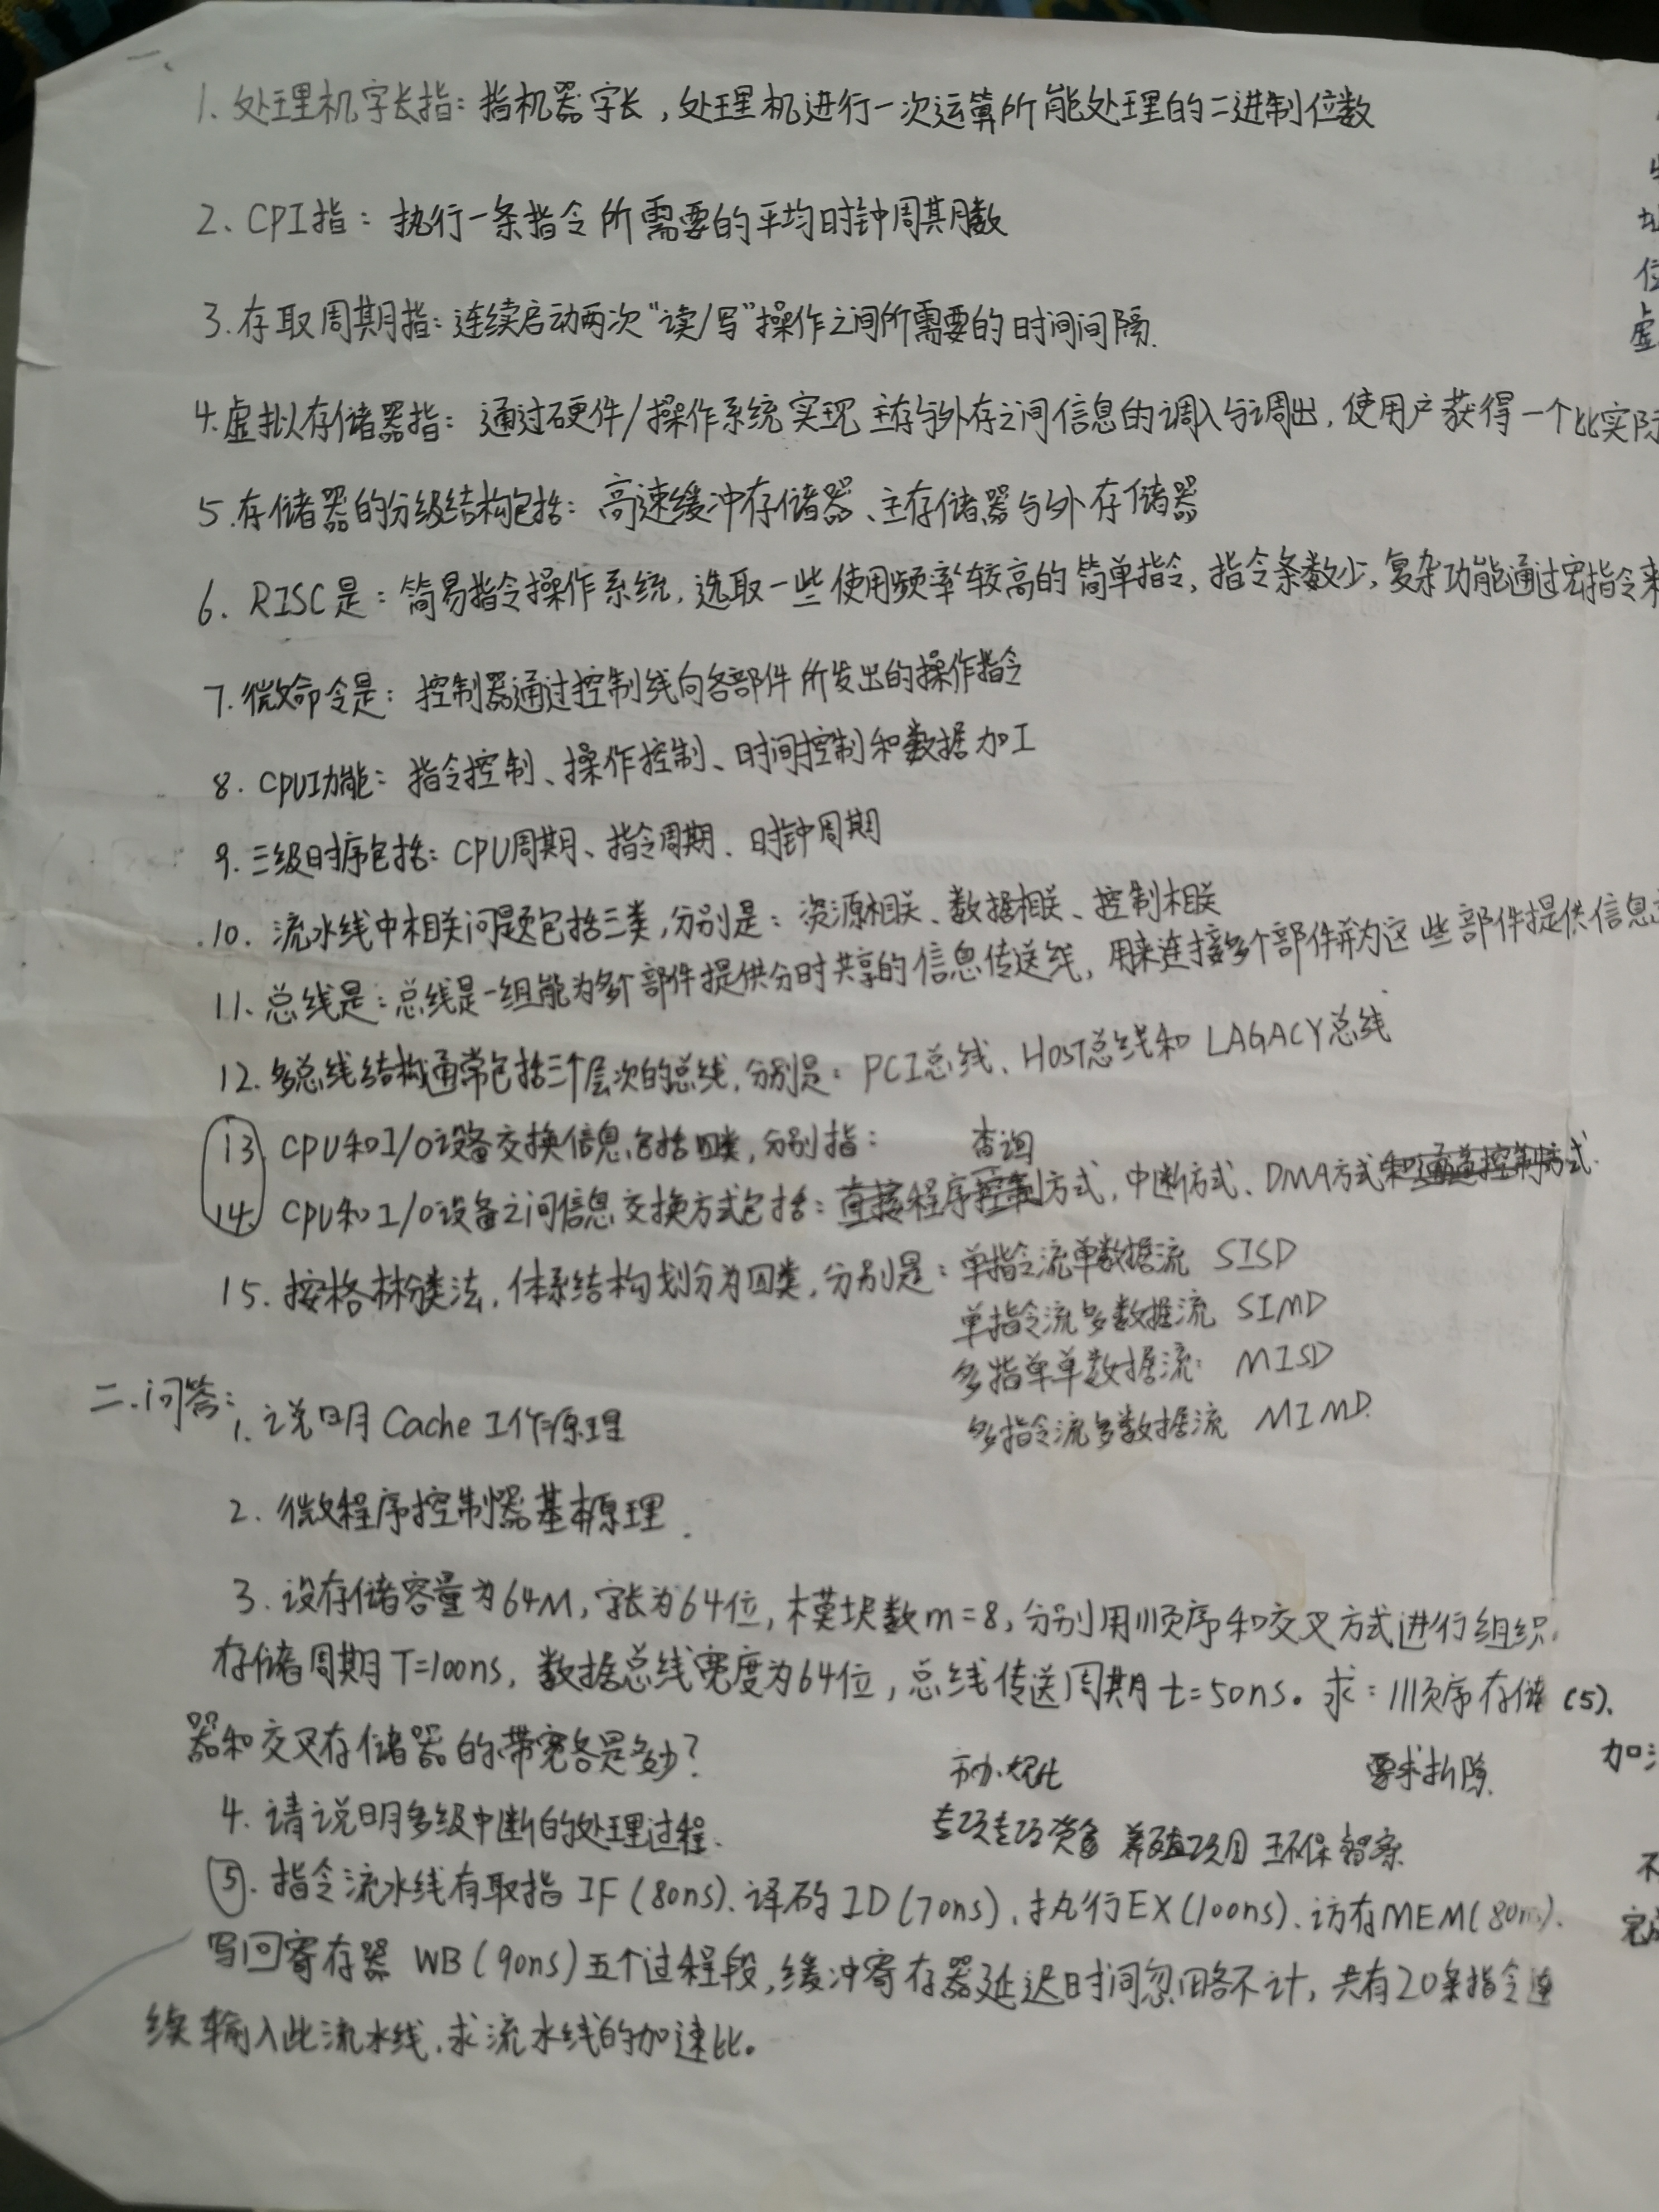 1. 处理机字长指：指机器字长，处理机进行一次运算所能处理的二进制位数
2、CPI指：执行一条指令所需要的平均时钟周期数
3.存取周期指：连续启动两次“读/写”操作之间所需要的时间间隔.
4.虚拟存储器指：通过硬件/操作系统实现主存与外存之间信息的调入与调出，使用户获得一个比实际
5.存储器的分级结构包括：高速缓冲存储器、主存储器与外存储器
6. RISC是：简易指令操作系统，选取一些使用频率较高的简单指令，指令条数少，复杂功能通过宏指令来
7.微命令是：控制器通过控制线向各部件所发出的操作指令
8. CPU功能：指令控制、操作控制、时间控制和数据加工
9.三级时序包括：CPU周期、指令周期、时钟周期
10. 流水线中相关问题包括三类，分别是：资源相关、数据相关、控制相关
11.总线是：总线是一组能为多个部件提供分时共享的信息传送线，用来连接多个部件并为这些部件提供信息
12.多总线结构通常包括三个层次的总线，分别是：PCI总线、HOST总线和LAGACY总线
13. CPU和I/O设备交换信息包括四类，分别指：
查询
14. CPU和I/O设备之间信息交换方式包括：直接程序控制方式，中断方式、DMA方式和通道控制方式.
15.按格林分类法，体系结构划分为四类，分别是：单指令流单数据流 SISD
单指令流多数据流 SIMD
多指单单数据流 MISD
多指令流多数据流 MIMD.
二.问答：
1.说明Cache工作原理
2. 微程序控制器基本原理.
3.设存储容量为64M，字长为64位，模块数m=8，分别用顺序和交叉方式进行组织.
存储周期T=100ns，数据总线宽度为64位，总线传送周期t=50ns。求：顺序存储 (5).
器和交叉存储器的带宽各是多少？
要求拆除. 加
4.请说明多级中断的处理过程.
项目 环保
⑤.指令流水线有取指IF(80ns).译码ID(70ns)、执行EX(100ns).访存MEM(80ns).
写回寄存器 WB(90ns)五个过程段，缓冲寄存器延迟时间忽略不计，共有20条指令连
续输入此流水线，求流水线的加速比。